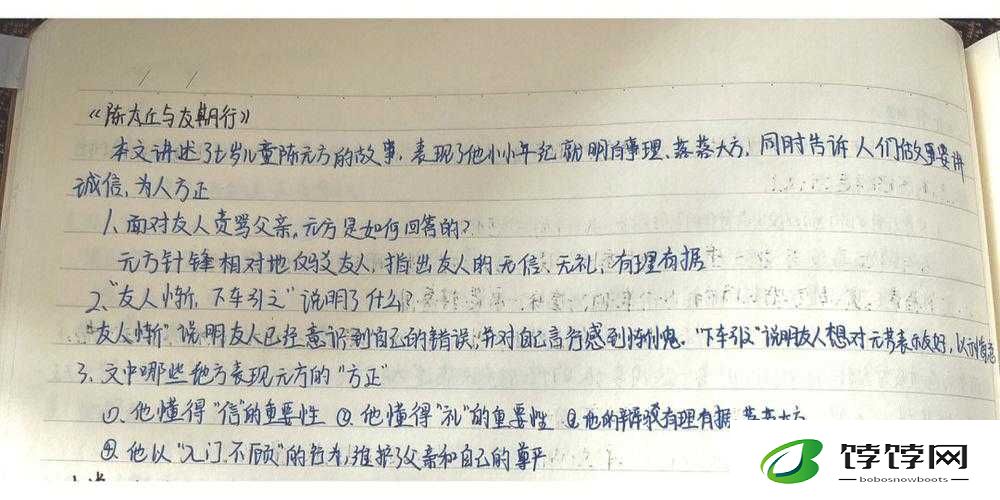 《陈太丘与友期行》
本文讲述了七岁儿童陈元方的故事，表现了他小小年纪就明白事理、落落大方，同时告诉人们做事要讲
诚信，为人方正
1、面对友人责骂父亲，元方是如何回答的？
元方针锋相对地反驳友人，指出友人的无信、无礼，有理有据
2、"友人惭，下车引之"说明了什么？
"友人惭"说明友人已经意识到自己的错误，并对自己言行感到惭愧。"下车引之"说明友人想对元方表示友好，以
3、文中哪些地方表现元方的"方正"
①、他懂得"信"的重要性 ②、他懂得"礼"的重要性 ③他的辩驳有理有据 落落大方
④他以"入门不顾"的行为，维护了父亲和自己的尊严
饽饽网
bobosnowboots